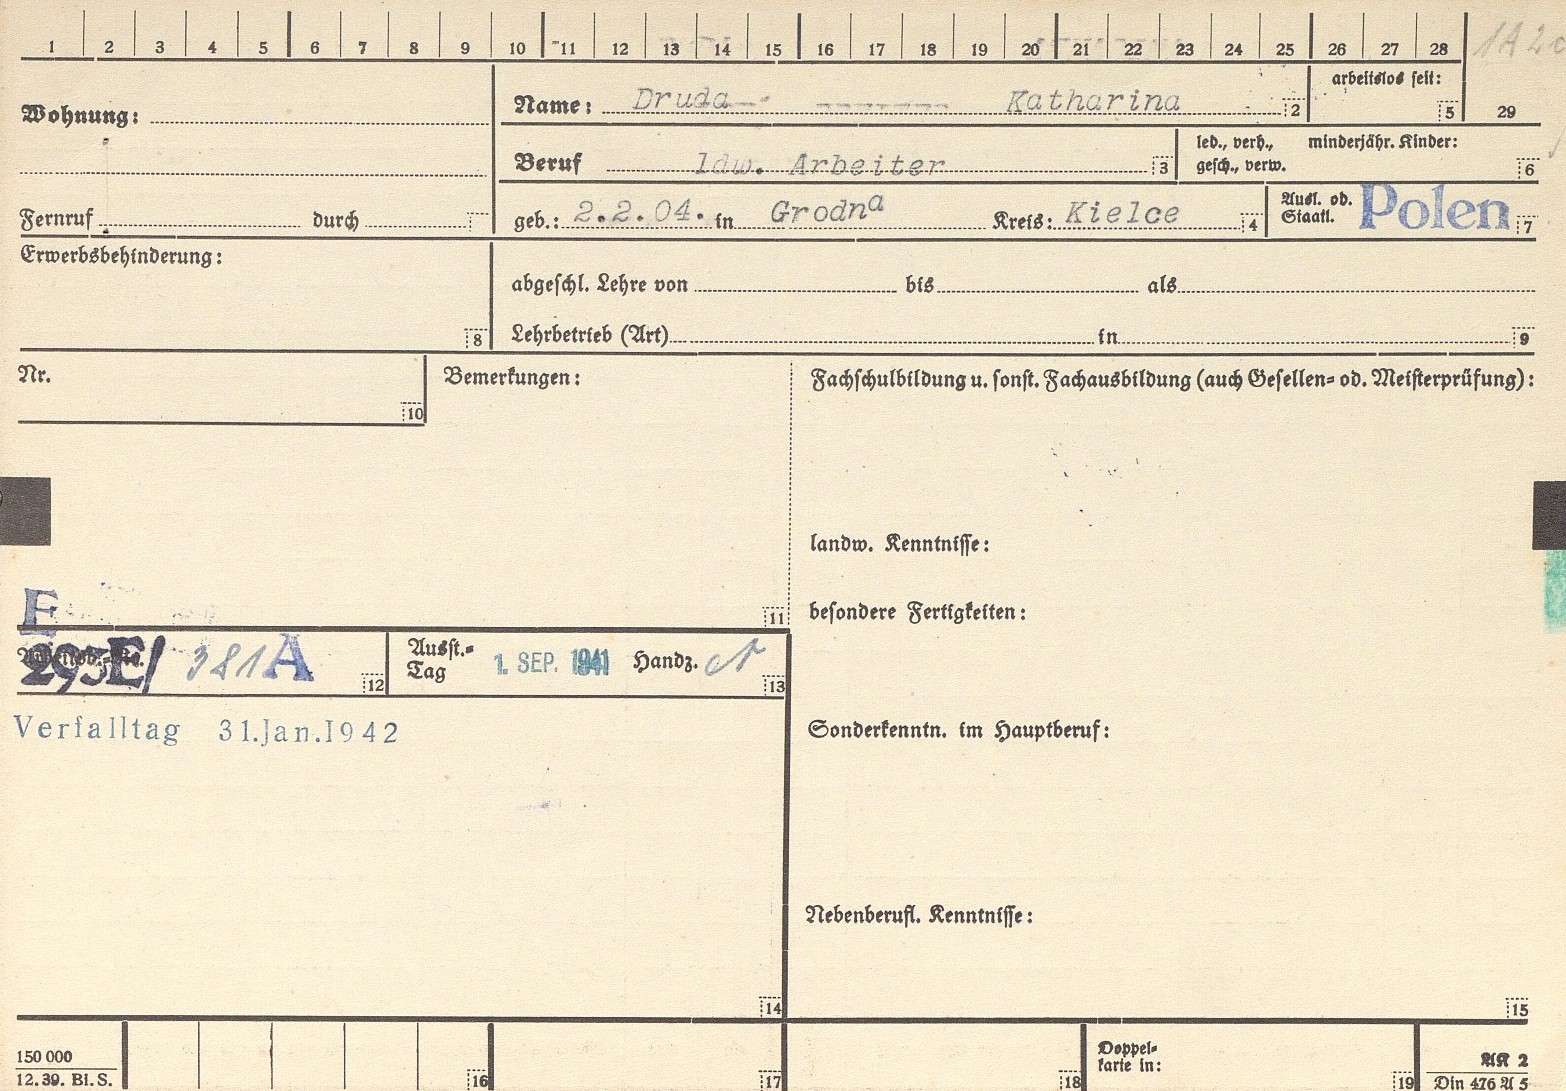 1 2 3 4 5 6 7 8 9 10 11 12 13 14 15 16 17 18 19 20 21 22 23 24 25 26 27 28
Wohnung:
Name: Druda Katharina 2
arbeitslos seit: 5
29
Beruf ldw. Arbeiter 3
led., verh., gesch., verw.
minderjähr. Kinder: 6
Fernruf durch
geb.: 2.2.04. in Grodna Kreis: Kielce 4
Ausl. od. Staatl. Polen 7
Erwerbsbehinderung: 8
abgeschl. Lehre von bis als
Lehrbetrieb (Art) in 9
Nr. 10
Bemerkungen: 11
Fachschulbildung u. sonst. Fachausbildung (auch Gesellen- od. Meisterprüfung):
landw. Kenntnisse:
besondere Fertigkeiten:
E
293E/ 381A 12
Ausst.-Tag 1. SEP. 1941 Handz. 13
Verfalltag 31.Jan.1942
Sonderkenntn. im Hauptberuf:
Nebenberufl. Kenntnisse:
14
15
150 000
12. 39. Bi. S.
16
17
18
Doppel-
karte in:
19
AK 2
Din 476 A 5